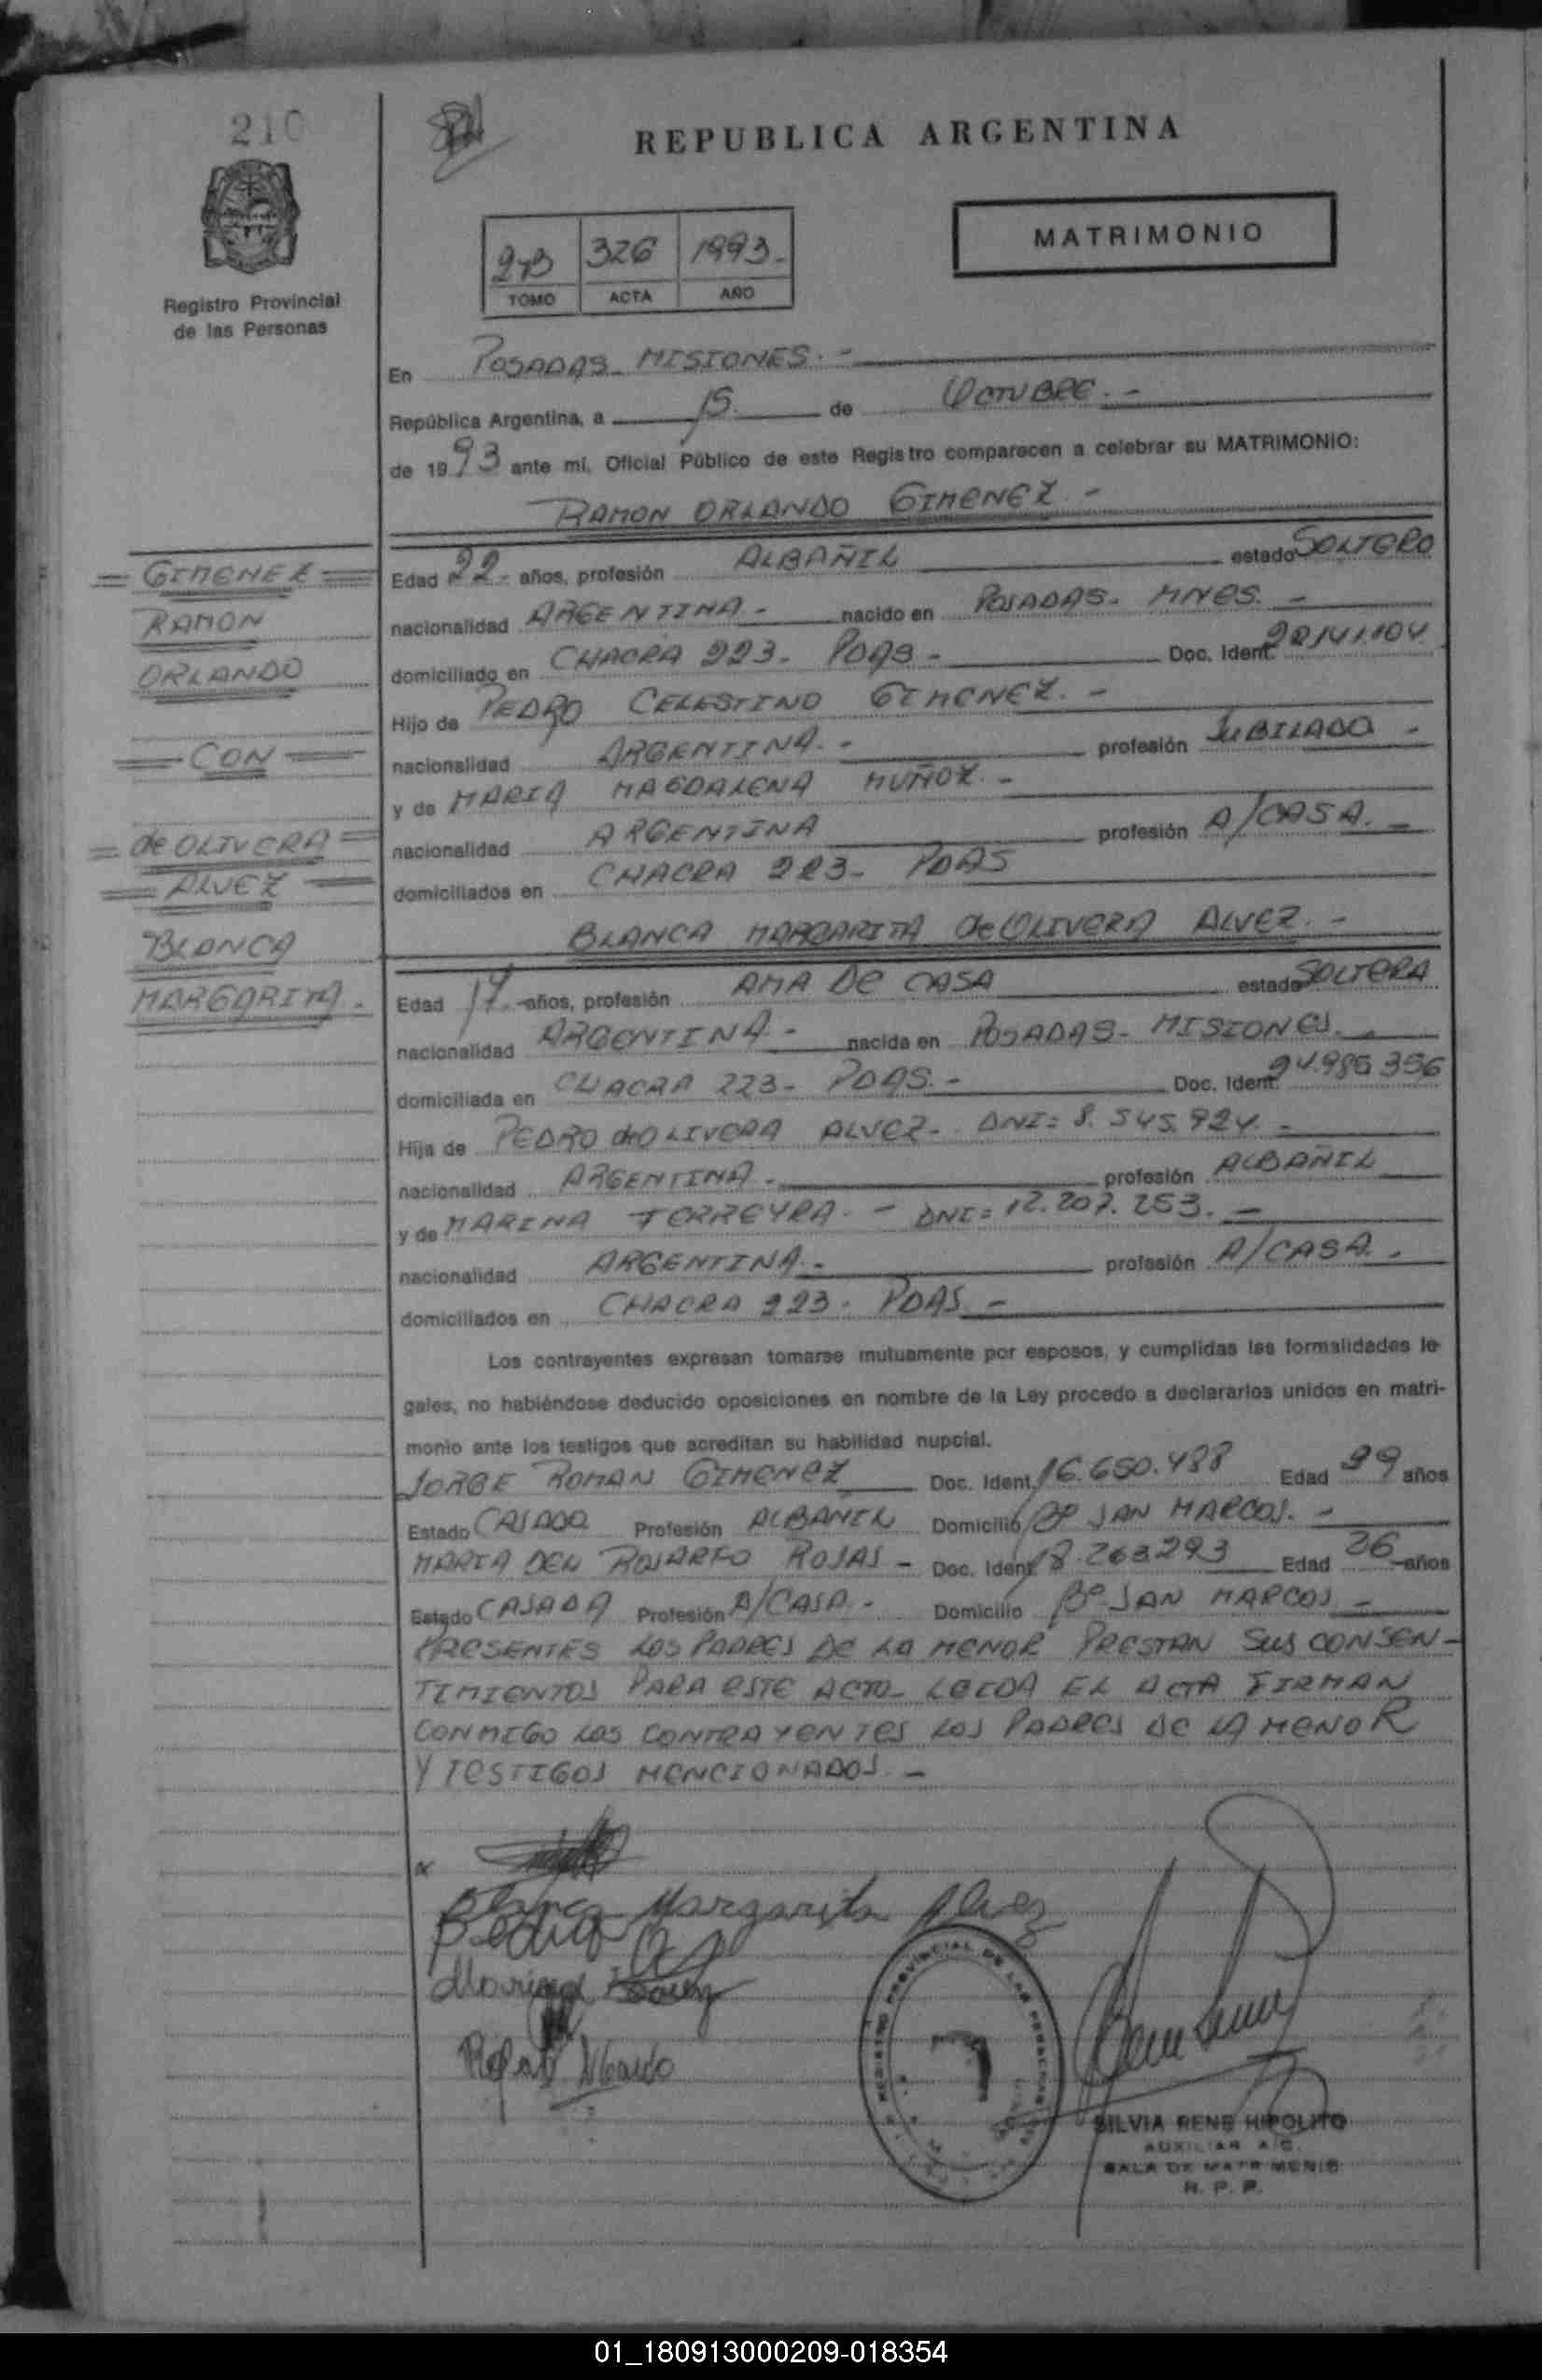 210
REPUBLICA ARGENTINA
MATRIMONIO
326 1993.-
TOMO ACTA AÑO
Registro Provincial
de las Personas
En POSADAS- MISIONES.-
República Argentina, a 15. de OCTUBRE.-
de 1993 ante mí, Oficial Público de este Registro comparecen a celebrar su MATRIMONIO:
RAMON ORLANDO GIMENEZ.-
= GIMENEZ =
RAMON
ORLANDO
= CON =
= de OLIVERA =
= ALVEZ =
BLANCA
MARGARITA.
Edad 22- años, profesión ALBAÑIL estado SOLTERO
nacionalidad ARGENTINA.- nacido en POSADAS- MNES.-
domiciliado en CHACRA 223- PDAS- Doc. Ident.
Hijo de PEDRO CELESTINO GIMENEZ.-
nacionalidad ARGENTINA.- profesión JUBILADO -
y de MARIA MAGDALENA MUÑOZ.-
nacionalidad ARGENTINA profesión A/CASA.-
domiciliados en CHACRA 223- PDAS
BLANCA MARGARITA de OLIVERA ALVEZ.-
Edad 17.- años, profesión AMA DE CASA estado SOLTERA
nacionalidad ARGENTINA- nacida en POSADAS- MISIONES.
domiciliada en CHACRA 223- PDAS.- Doc. Ident.
Hija de PEDRO de OLIVERA ALVEZ- DNI= 8.545.924.-
nacionalidad ARGENTINA.- profesión ALBAÑIL
y de MARINA FERREYRA.- DNI= 12.207.253.-
nacionalidad ARGENTINA.- profesión A/CASA.
domiciliados en CHACRA 223- PDAS.-
Los contrayentes expresan tomarse mutuamente por esposos, y cumplidas las formalidades le-
gales, no habiéndose deducido oposiciones en nombre de la Ley procedo a declararlos unidos en matri-
monio ante los testigos que acreditan su habilidad nupcial.
JORGE ROMAN GIMENEZ Doc. Ident. 16.650.488 Edad años
Estado CASADO Profesión ALBAÑIL Domicilio Bº SAN MARCOS.-
MARIA DEL ROSARIO ROJAS- Doc. Ident. 18.263.293 Edad 26 años
Estado CASADA Profesión A/CASA- Domicilio Bº SAN MARCOS-
PRESENTES LOS PADRES DE LA MENOR PRESTAN SUS CONSEN-
TIMIENTOS PARA ESTE ACTO- LEIDA EL ACTA FIRMAN
CONMIGO LOS CONTRAYENTES LOS PADRES DE LA MENOR
Y TESTIGOS MENCIONADOS.-
Blanca Margarita Alvez
Marina
REGISTRO PROVINCIAL DE LAS PERSONAS
SILVIA RENE HIPOLITO
AUXILIAR A/C.
SALA DE MATRIMONIO
R. P. P.
01_180913000209-018354